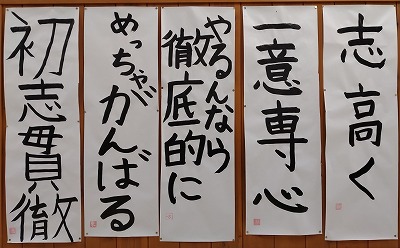 志高く
一意専心
やるんなら
徹底的に
めっちゃがんばる
初志貫徹